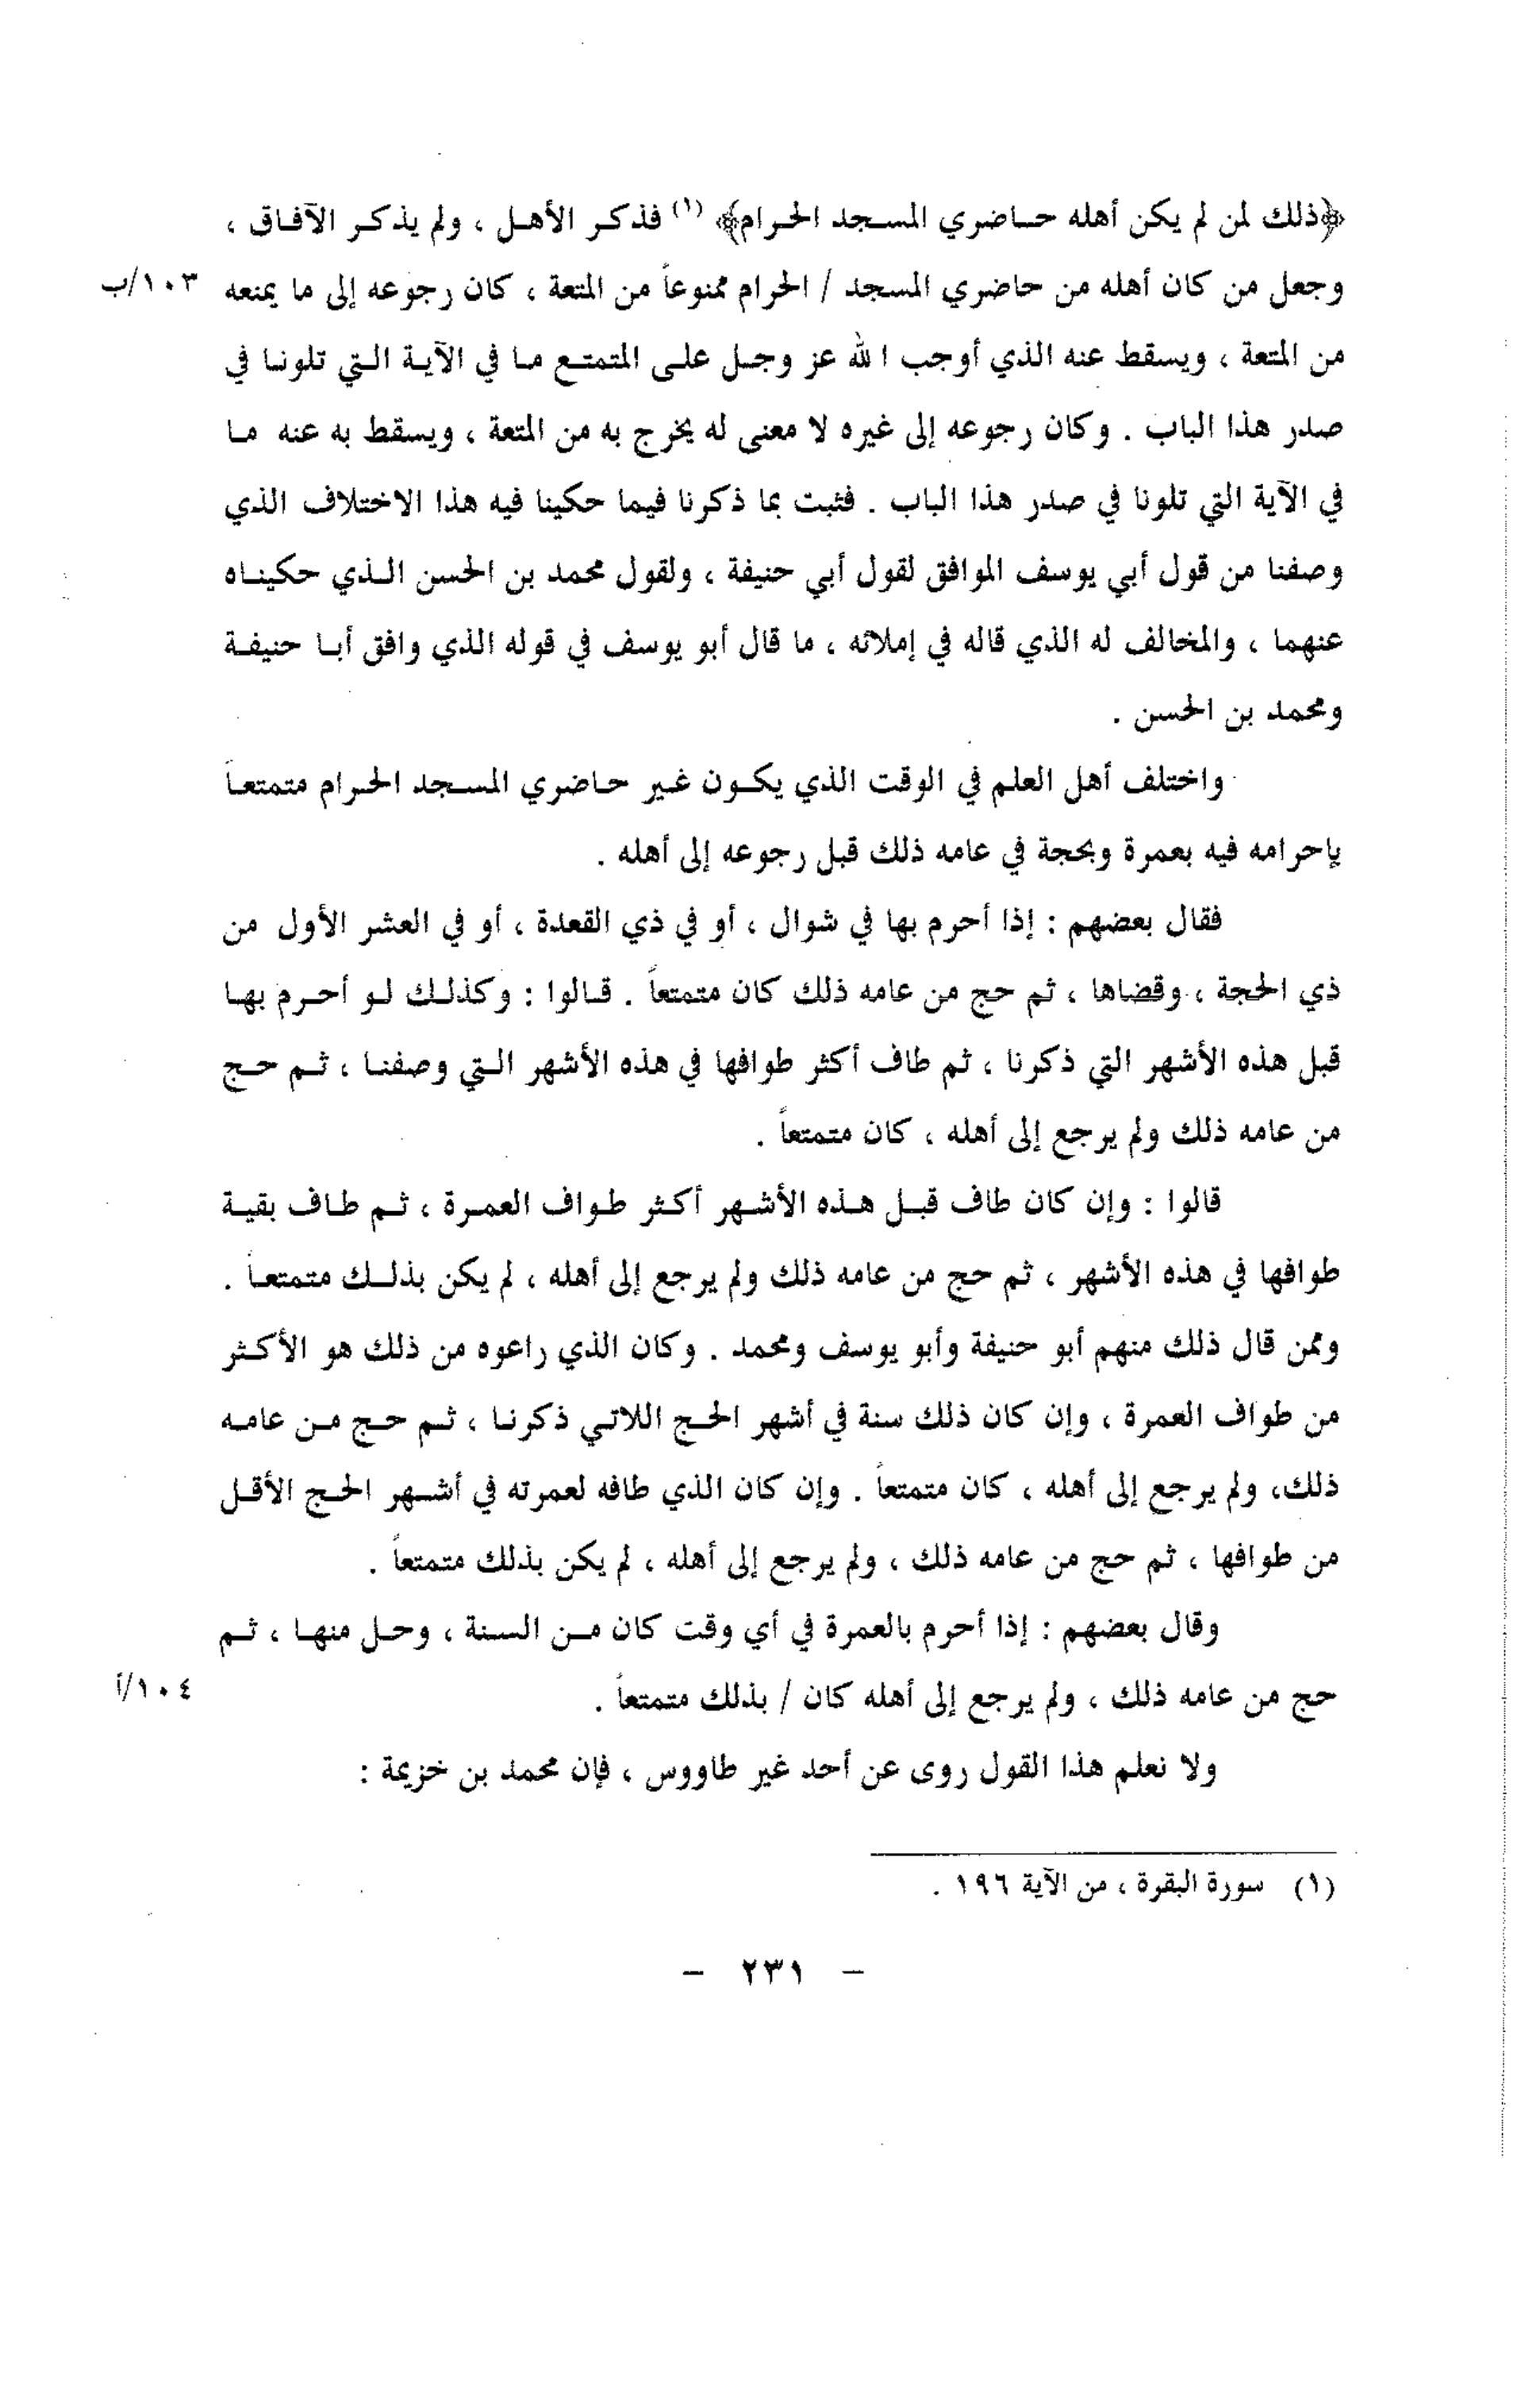 ﴿ذلك لمن لم يكن أهله حاضري المسجد الحرام﴾ (١) فذكر الأهل ، ولم يذكر الآفاق ،
وجعل من كان أهله من حاضري المسجد / الحرام ممنوعاً من المتعة ، كان رجوعه إلى ما يمنعه ١٠٣/ب
من المتعة ، ويسقط عنه الذي أوجب الله عز وجل على المتمتع ما في الآية التي تلونا في
صدر هذا الباب . وكان رجوعه إلى غيره لا معنى له يخرج به من المتعة ، ويسقط به عنه ما
في الآية التي تلونا في صدر هذا الباب . فثبت بما ذكرنا فيما حكينا فيه هذا الاختلاف الذي
وصفنا من قول أبي يوسف الموافق لقول أبي حنيفة ، ولقول محمد بن الحسن الذي حكيناه
عنهما ، والمخالف له الذي قاله في إملائه ، ما قال أبو يوسف في قوله الذي وافق أبا حنيفة
ومحمد بن الحسن .
واختلف أهل العلم في الوقت الذي يكون غير حاضري المسجد الحرام متمتعاً
بإحرامه فيه بعمرة وبحجة في عامه ذلك قبل رجوعه إلى أهله .
فقال بعضهم : إذا أحرم بها في شوال ، أو في ذي القعدة ، أو في العشر الأول من
ذي الحجة ، وقضاها ، ثم حج من عامه ذلك كان متمتعاً . قالوا : وكذلك لو أحرم بها
قبل هذه الأشهر التي ذكرنا ، ثم طاف أكثر طوافها في هذه الأشهر التي وصفنا ، ثم حج
من عامه ذلك ولم يرجع إلى أهله ، كان متمتعاً .
قالوا : وإن كان طاف قبل هذه الأشهر أكثر طواف العمرة ، ثم طاف بقية
طوافها في هذه الأشهر ، ثم حج من عامه ذلك ولم يرجع إلى أهله ، لم يكن بذلك متمتعاً .
وممن قال ذلك منهم أبو حنيفة وأبو يوسف ومحمد . وكان الذي راعوه من ذلك هو الأكثر
من طواف العمرة ، وإن كان ذلك سنة في أشهر الحج اللاتي ذكرنا ، ثم حج من عامه
ذلك، ولم يرجع إلى أهله ، كان متمتعاً . وإن كان الذي طافه لعمرته في أشهر الحج الأقل
من طوافها ، ثم حج من عامه ذلك ، ولم يرجع إلى أهله ، لم يكن بذلك متمتعاً .
وقال بعضهم : إذا أحرم بالعمرة في أي وقت كان من السنة ، وحل منها ، ثم
حج من عامه ذلك ، ولم يرجع إلى أهله كان / بذلك متمتعاً . ١٠٤/أ
ولا نعلم هذا القول روى عن أحد غير طاووس ، فإن محمد بن خزيمة :
(١) سورة البقرة ، من الآية ١٩٦ .
– ٢٣١ –